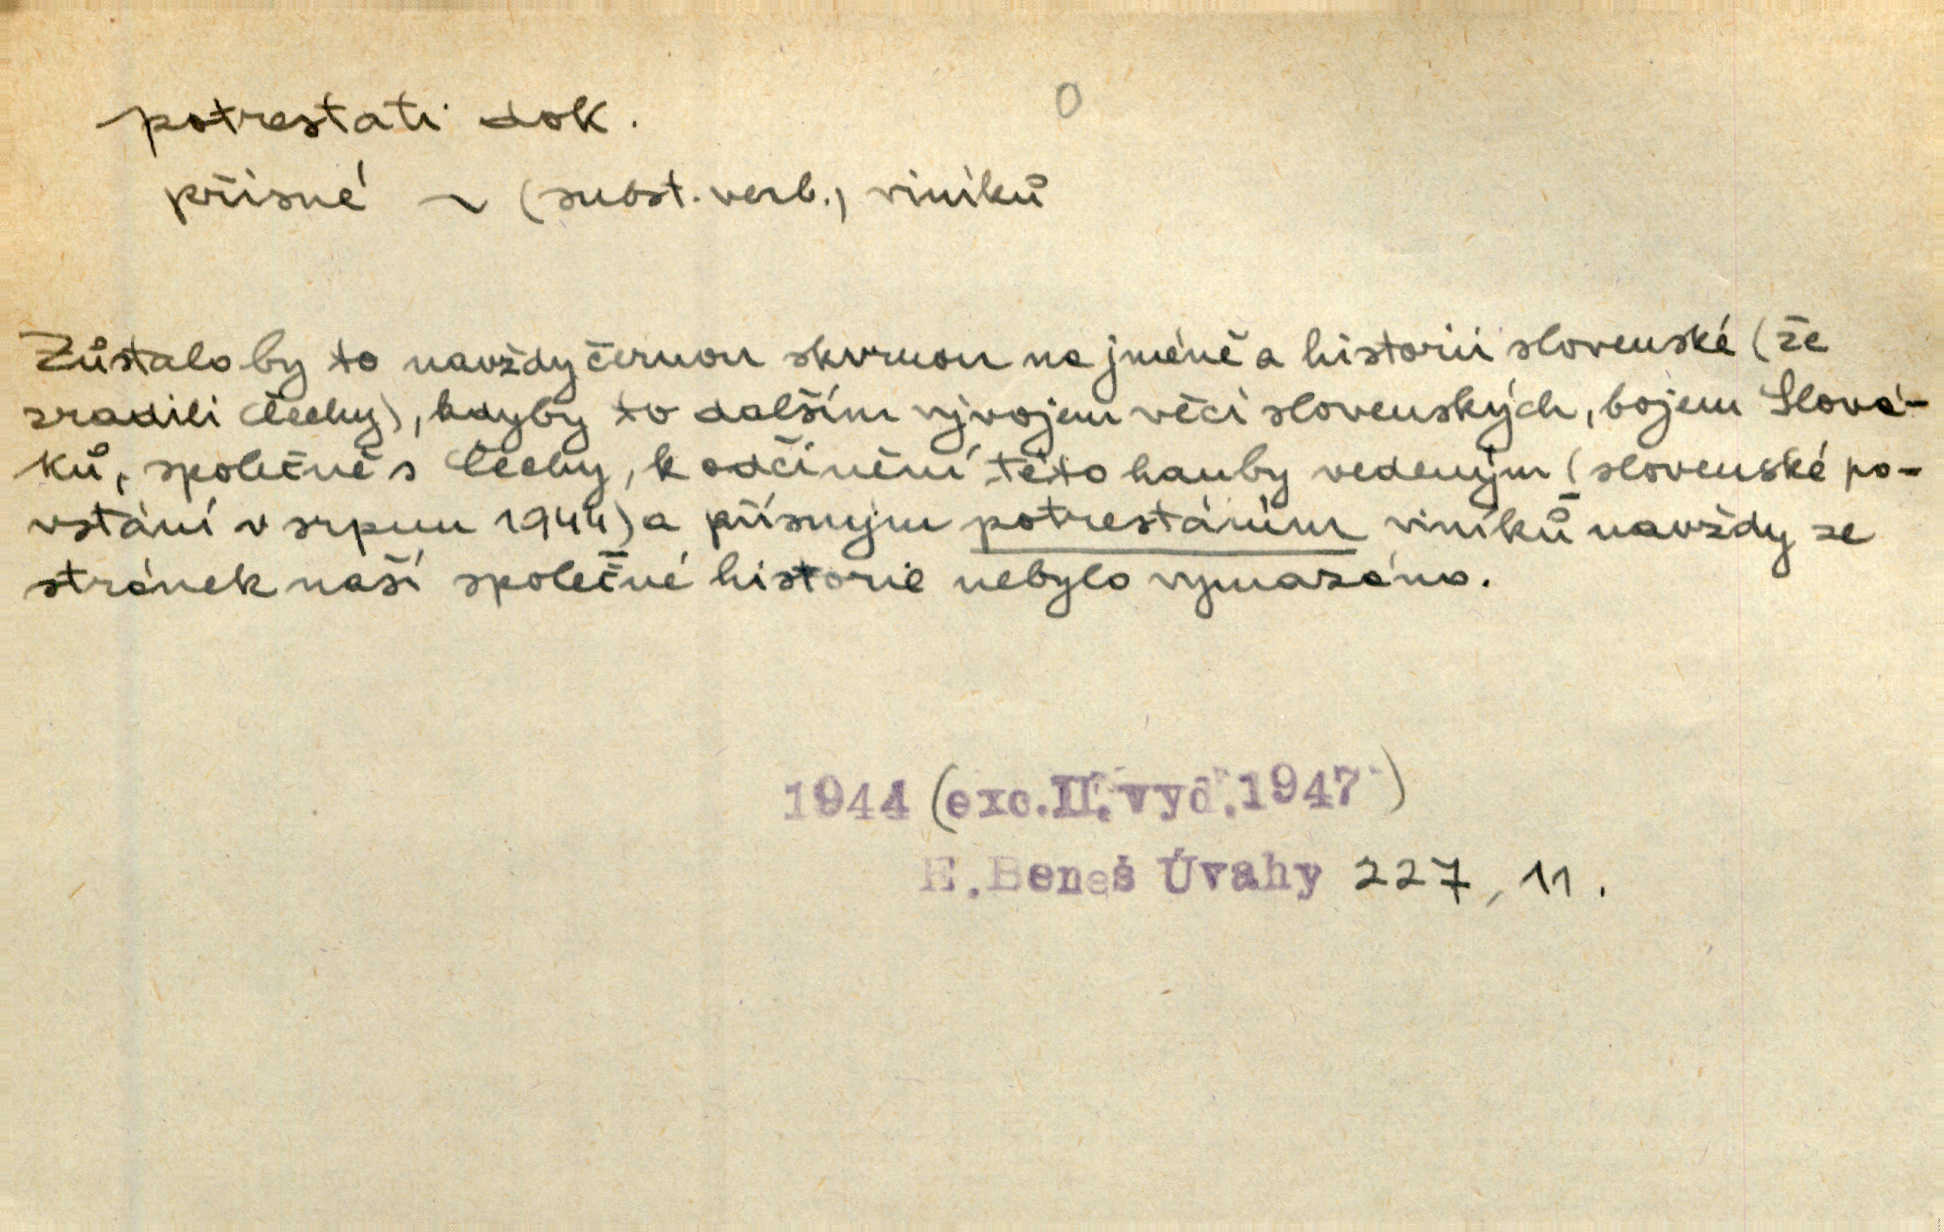 potrestati dok.
0
přísné ~ (subst. verb.) viníků
Zůstalo by to navždy černou skvrnou na jméně a historii slovenské (že
zradili Čechy), kdyby to dalším vývojem věcí slovenských, bojem Slová-
ků, společně s Čechy, k odčinění této hanby vedeným (slovenské po-
vstání v srpnu 1944) a přísným potrestáním viníků navždy ze
stránek naší společné historie nebylo vymazáno.
1944 (exc.II.vyd.1947)
E.Beneš Úvahy 227, 11.